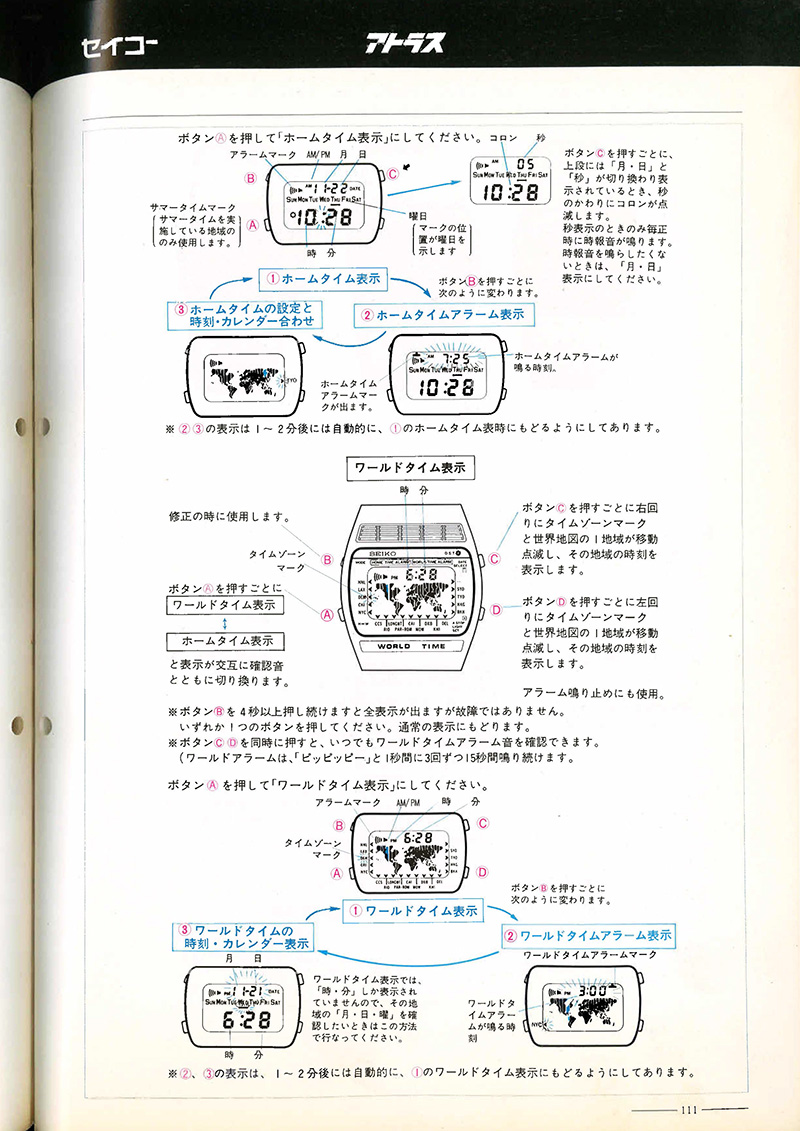 セイコー
アトラス
ボタンⒶを押して「ホームタイム表示」にしてください。
コロン 秒
アラームマーク AM/PM 月 日
Ⓑ
Ⓒ
Ⓐ
AM 11-22 DATE
SUN MON TUE WED THU FRI SAT
10:28
時 分
サマータイムマーク
サマータイムを実
施している地域の
のみ使用します。
曜日
マークの位
置が曜日を
示します
AM 05
SUN MON TUE WED THU FRI SAT
10:28
ボタンⒸを押すごとに、
上段には「月・日」と
「秒」が切り換わり表
示されているとき、秒
のかわりにコロンが点
減します。
秒表示のときのみ毎正
時に時報音が鳴ります。
時報音を鳴らしたくな
いときは、「月・日」
表示にしてください。
①ホームタイム表示
ボタンⒷを押すごとに
次のように変わります。
③ホームタイムの設定と
時刻・カレンダー合わせ
②ホームタイムアラーム表示
TYO
AM 7:25
SUN MON TUE WED THU FRI SAT
10:28
ホームタイムアラームが
鳴る時刻。
ホームタイム
アラームマー
クが出ます。
※②③の表示は1～2分後には自動的に、①のホームタイム表時にもどるようにしてあります。
ワールドタイム表示
時 分
修正の時に使用します。
タイムゾーン
マーク
ボタンⒶを押すごとに
ワールドタイム表示
ホームタイム表示
と表示が交互に確認音
とともに切り換ります。
Ⓑ
Ⓐ
Ⓒ
Ⓓ
SEIKO
MODE HOME TIME ALARM WORLD TIME ALARM
PM 6:28
HNL
LAX
DEN
CHI
NYC
SYD
TYO
HKG
BKK
CCS LON GMT CAI DXB DEL
RIO PAR-ROM MOW KHI
WORLD TIME
ボタンⒸを押すごとに右回
りにタイムゾーンマーク
と世界地図の1地域が移動
点減し、その地域の時刻を
表示します。
ボタンⒹを押すごとに左回
りにタイムゾーンマーク
と世界地図の1地域が移動
点減し、その地域の時刻を
表示します。
アラーム鳴り止めにも使用。
※ボタンⒷを4秒以上押し続けますと全表示が出ますが故障ではありません。
いずれか1つのボタンを押してください。通常の表示にもどります。
※ボタンⒸⒹを同時に押すと、いつでもワールドタイムアラーム音を確認できます。
（ワールドアラームは、「ピッピッピー」と1秒間に3回ずつ15秒間鳴り続けます。
ボタンⒶを押して「ワールドタイム表示」にしてください。
アラームマーク AM/PM 時 分
Ⓑ
Ⓒ
タイムゾーン
マーク
Ⓐ
Ⓓ
PM 6:28
HNL
LAX
DEN
CHI
NYC
SYD
TYO
HKG
BKK
CCS LON GMT CAI DXB DEL
RIO PAR-ROM MOW KHI
ボタンⒷを押すごとに
次のように変わります。
①ワールドタイム表示
③ワールドタイムの
時刻・カレンダー表示
②ワールドタイムアラーム表示
月 日
PM 11-21 DATE
SUN MON TUE WED THU FRI SAT
6:28
時 分
ワールドタイム表示では、
「時・分」しか表示され
ていませんので、その地
域の「月・日・曜」を確
認したいときはこの方法
で行なってください。
ワールドタイムアラームマーク
PM 3:00
NYC
ワールドタ
イムアラー
ムが鳴る時
刻
※②、③の表示は、1～2分後には自動的に、①のワールドタイム表示にもどるようにしてあります。
111